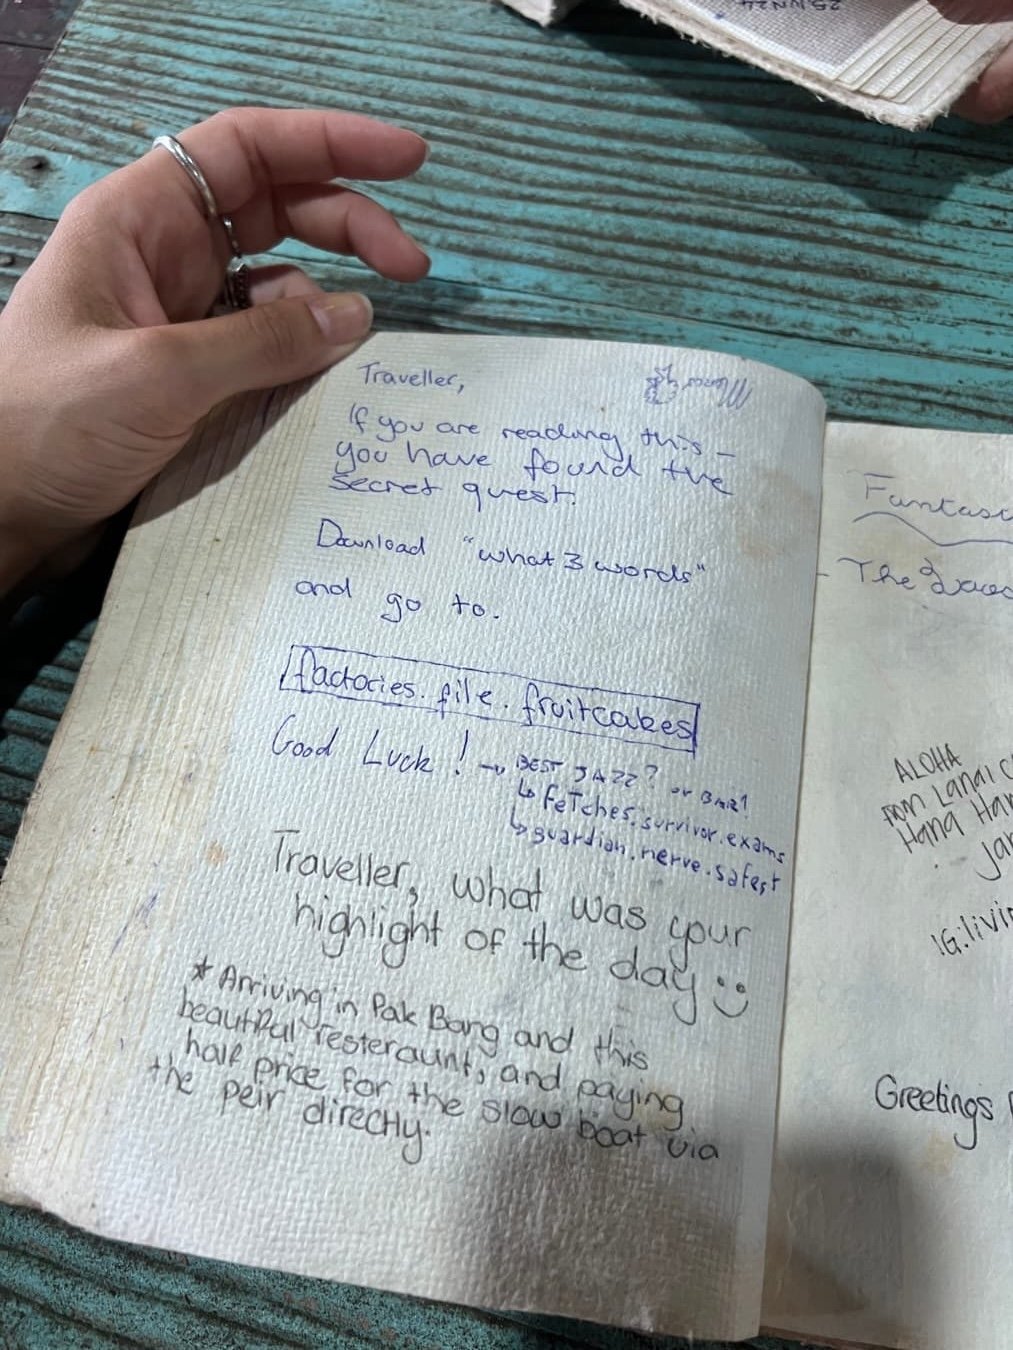 25 JUN 24
Traveller,
If you are reading this –
you have found the
secret quest.
Download "what 3 words"
and go to.
factories.file.fruitcakes
Good Luck! → BEST JAZZ? or BAR?
↳ feTches.survivor.exams
↳ guardian.nerve.safest
Traveller, what was your
highlight of the day :)
* Arriving in Pak Bang and this
beautiful resteraunt, and paying
half price for the slow boat via
the peir directly.
The
ALOHA
from Lanai
Hana
IG:
Greetings